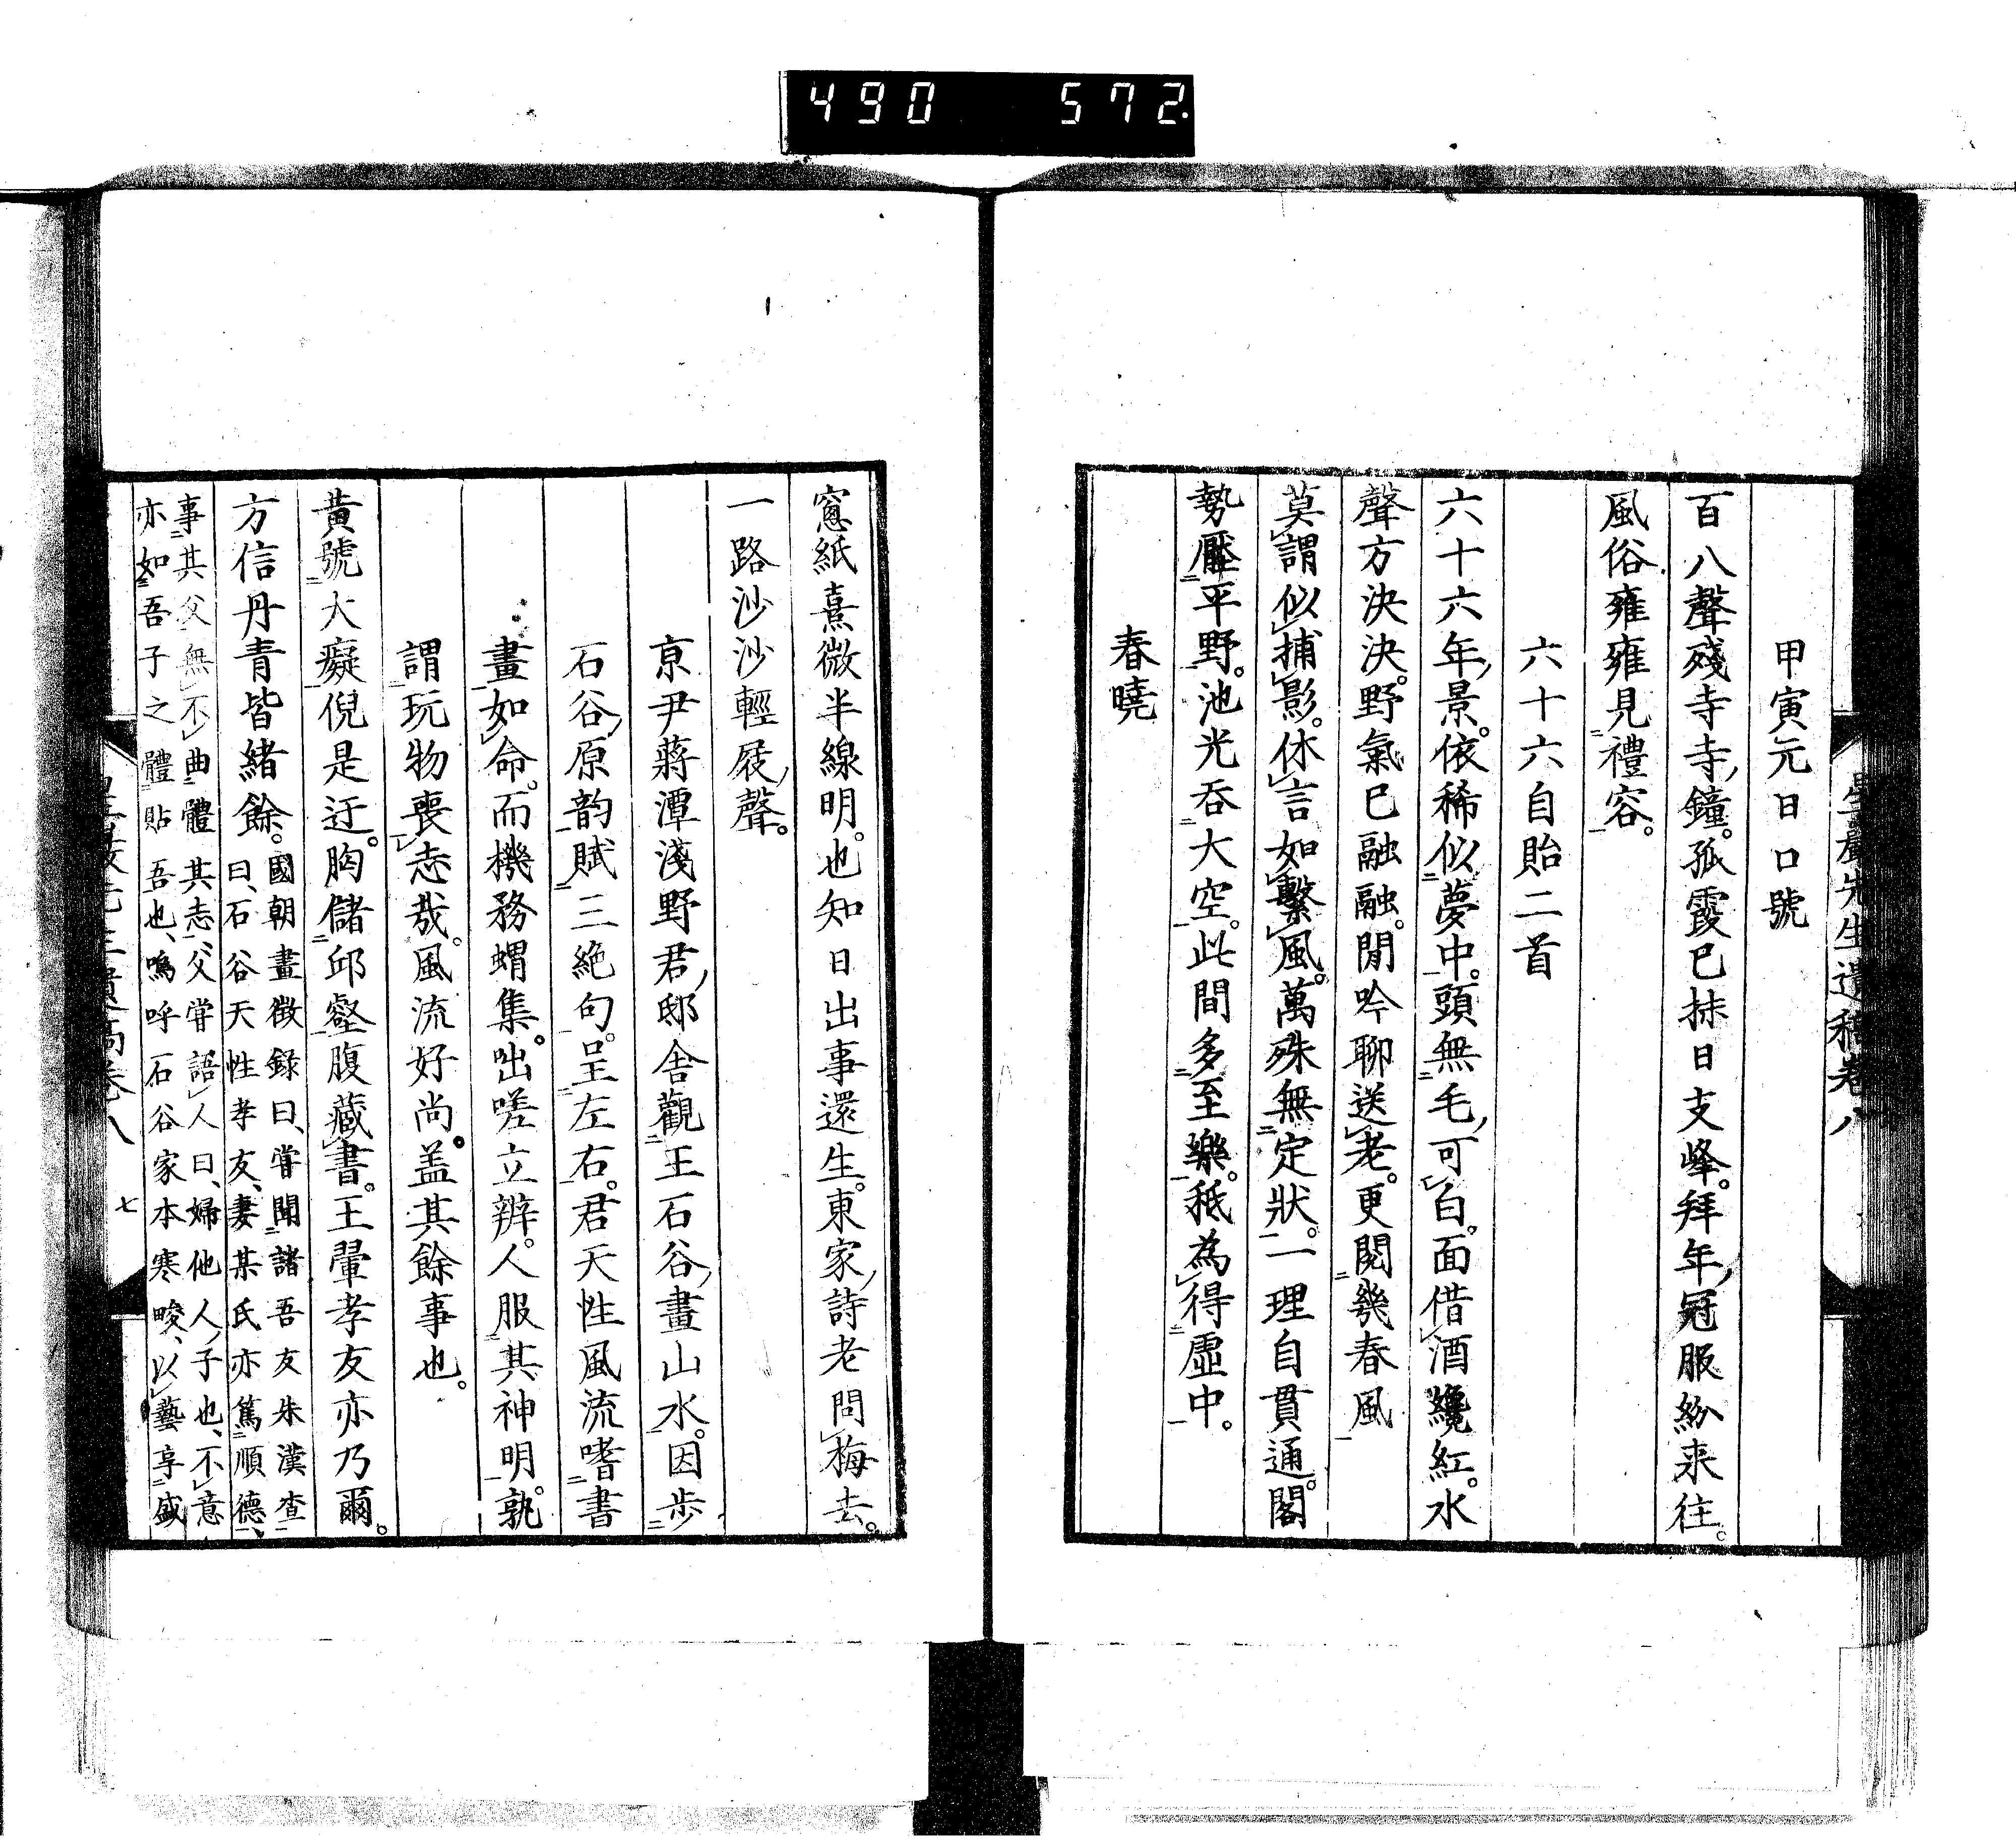 490 572
星巖先生遺稿卷八
甲寅元日口號
百八聲殘寺寺鐘。孤霞已抹日支峰。拜年冠服紛来往。
風俗雍雍見禮容。
六十六自貽二首
六十六年景。依稀似夢中。頭無毛可白。面借酒纔紅。水
聲方決決。野氣已融融。閒吟聊送老。更閲幾春風
莫謂似捕影。休言如繫風。萬殊無定狀。一理自貫通。閣
勢壓平野。池光呑大空。此間多至樂。秪為得虛中。
春曉
窓紙熹微半線明。也知日出事還生。東家詩老問梅去。
一路沙沙輕屐聲。
京尹蔣潭淺野君邸舎觀王石谷畫山水。因歩
石谷原韵賦三絶句。呈左右。君天性風流嗜書
畫如命。而機務蝟集。咄嗟立辨。人服其神明。孰
謂玩物喪志哉。風流好尚。盖其餘事也。
黃號大癡倪是迂。胸儲邱壑腹藏書。王翬孝友亦乃爾。
方信丹青皆緒餘。
國朝畫徴録曰、甞聞諸吾友朱漢查
曰、石谷天性孝友、妻某氏亦篤順德、
事其父無不曲體其志、父甞語人曰、婦他人子也、不意
亦如吾子之體貼吾也、嗚呼石谷家本寒畯、以藝享盛
七